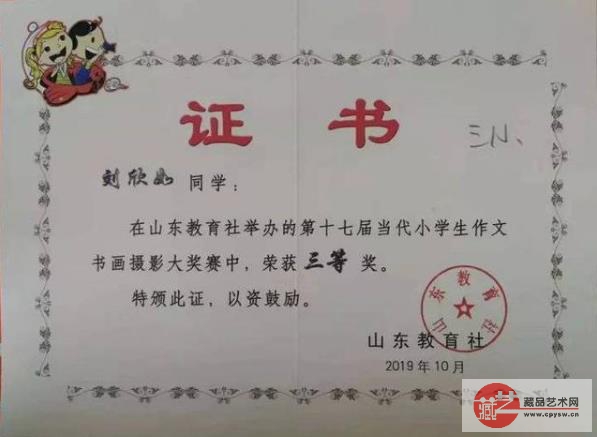 证书
三小、
刘欣如同学：
在山东教育社举办的第十七届当代小学生作文
书画摄影大奖赛中，荣获三等奖。
特颁此证，以资鼓励。
山东教育社
山东教育社
2019年10月
藏艺
藏品艺术网
www.cpysw.com